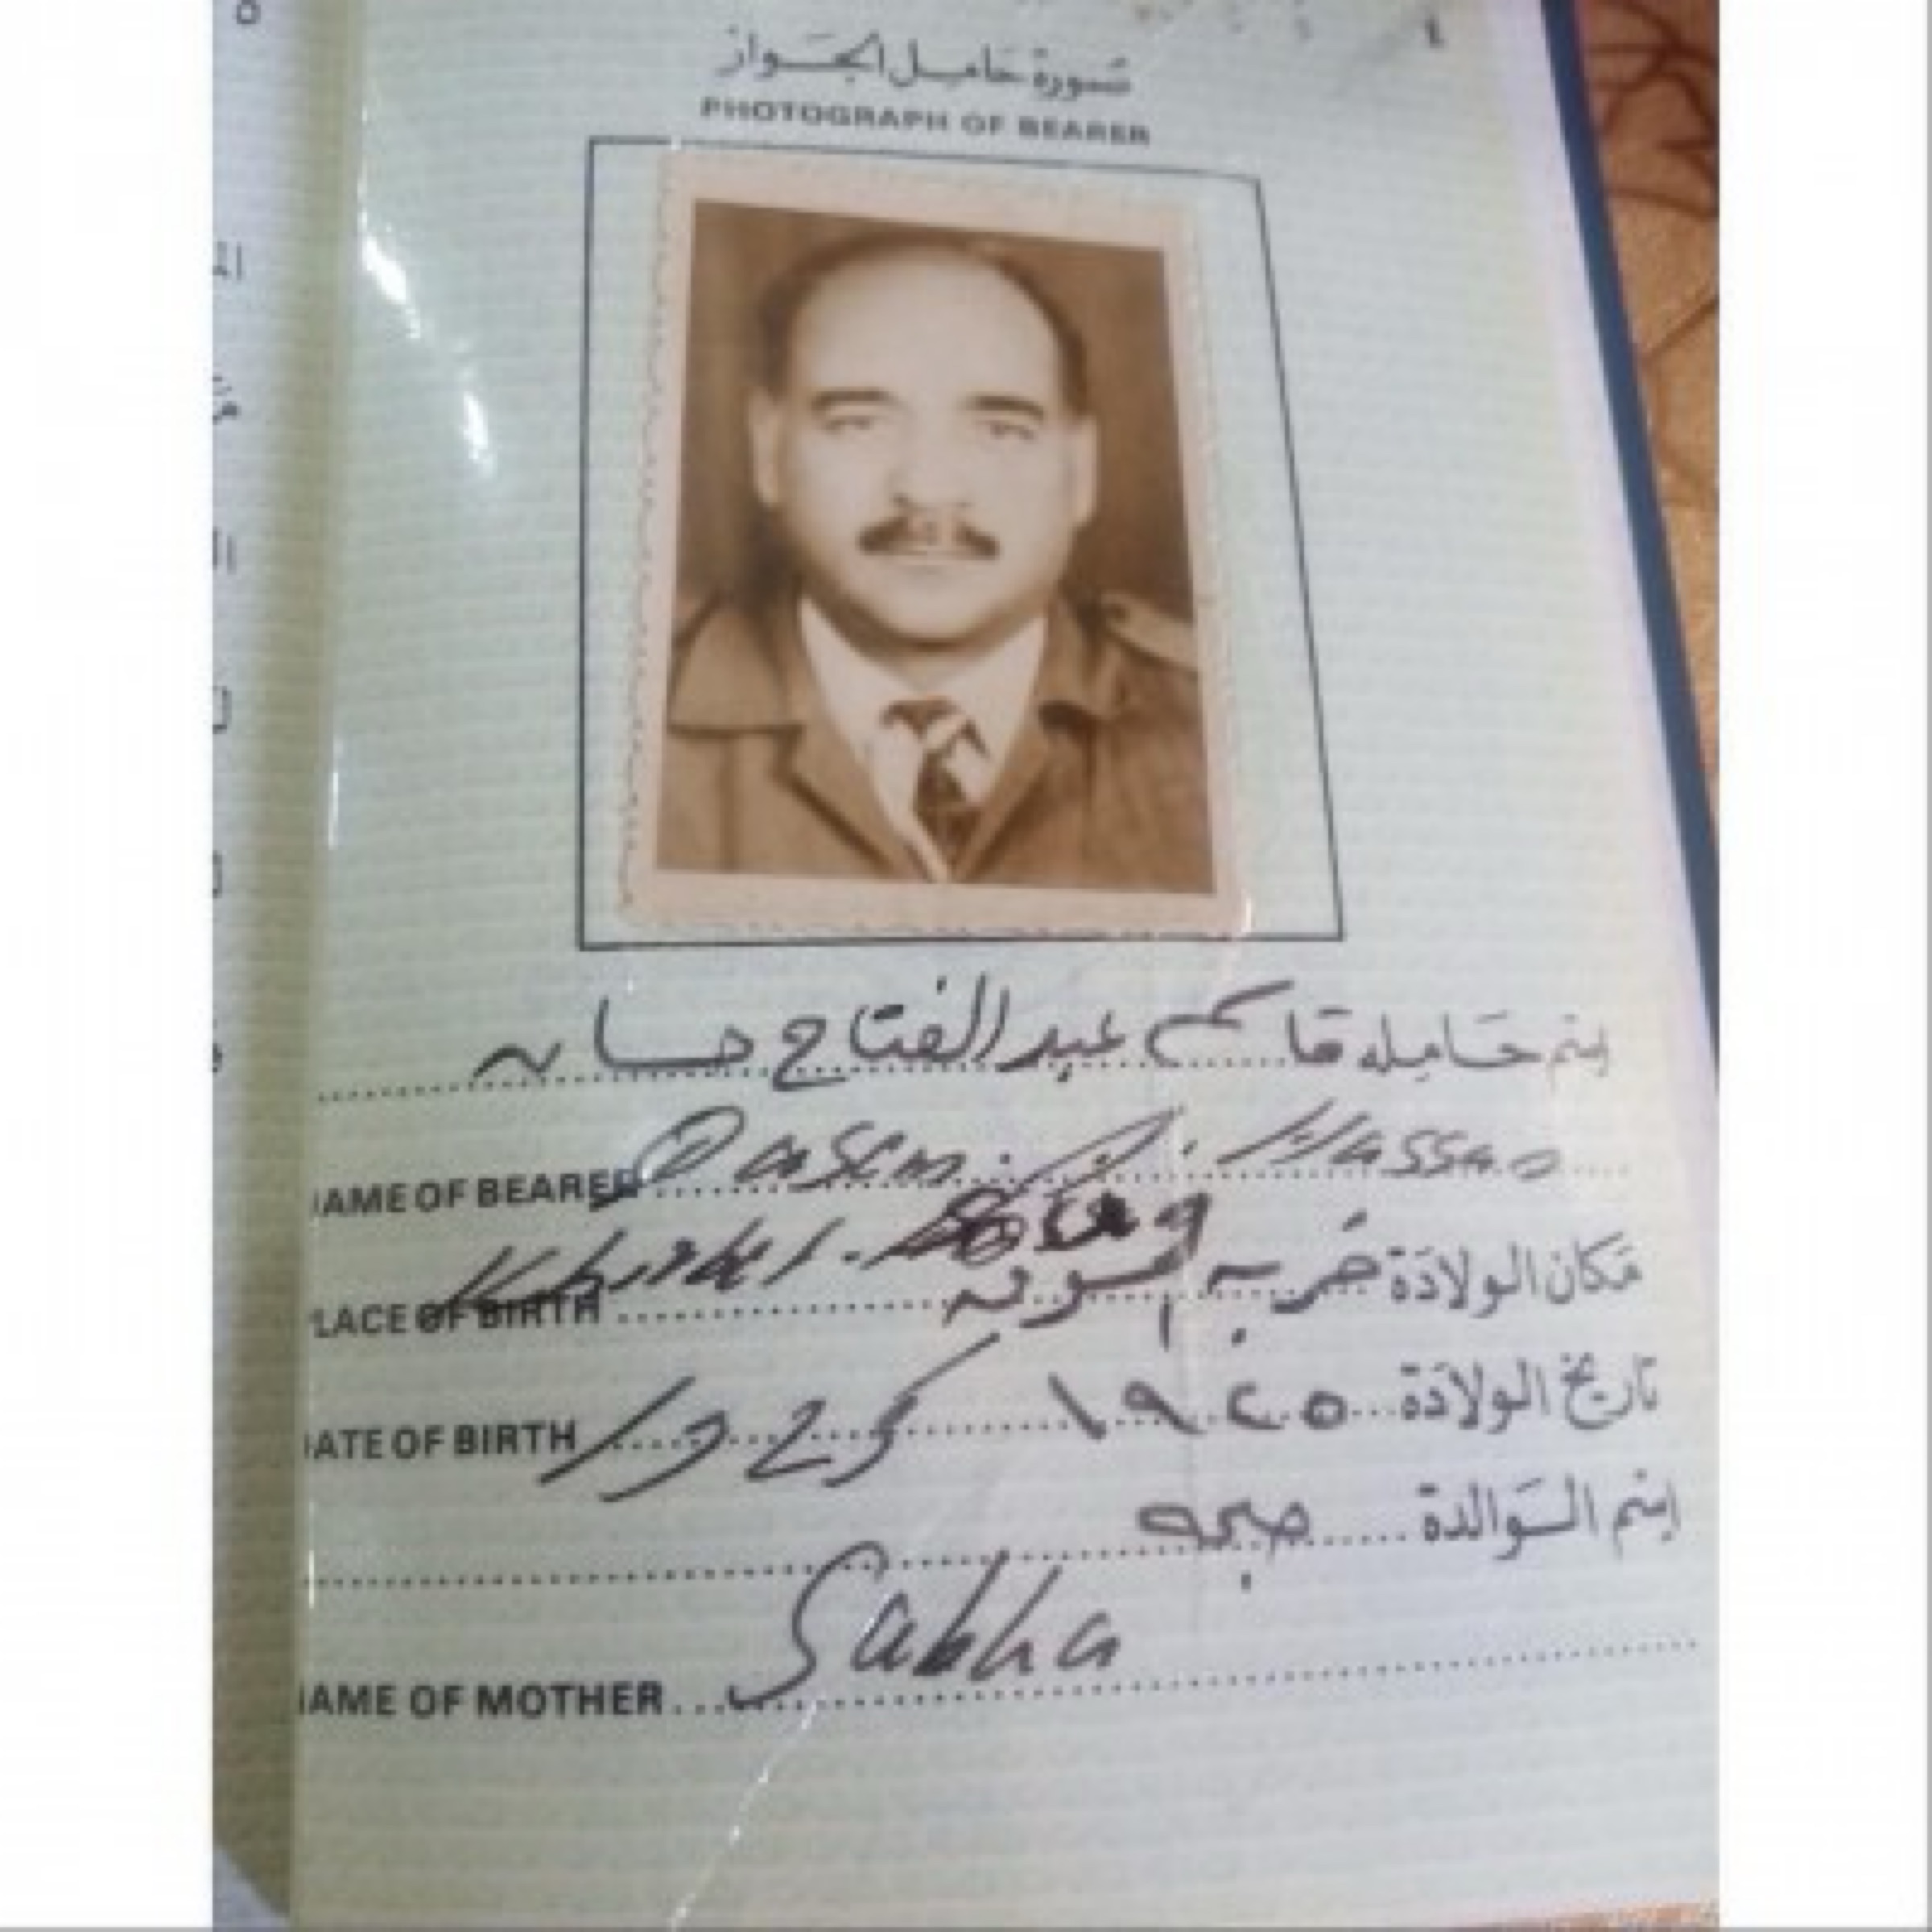 ٤
صورة حامل الجواز
PHOTOGRAPH OF BEARER
إسم حامله قاسم عبد الفتاح حسان
NAME OF BEARER Qasem. A. Hassan
مكان الولادة خربة
PLACE OF BIRTH
تاريخ الولادة ١٩٢٥
DATE OF BIRTH 1925
إسم الوالدة صبحه
NAME OF MOTHER Sabha